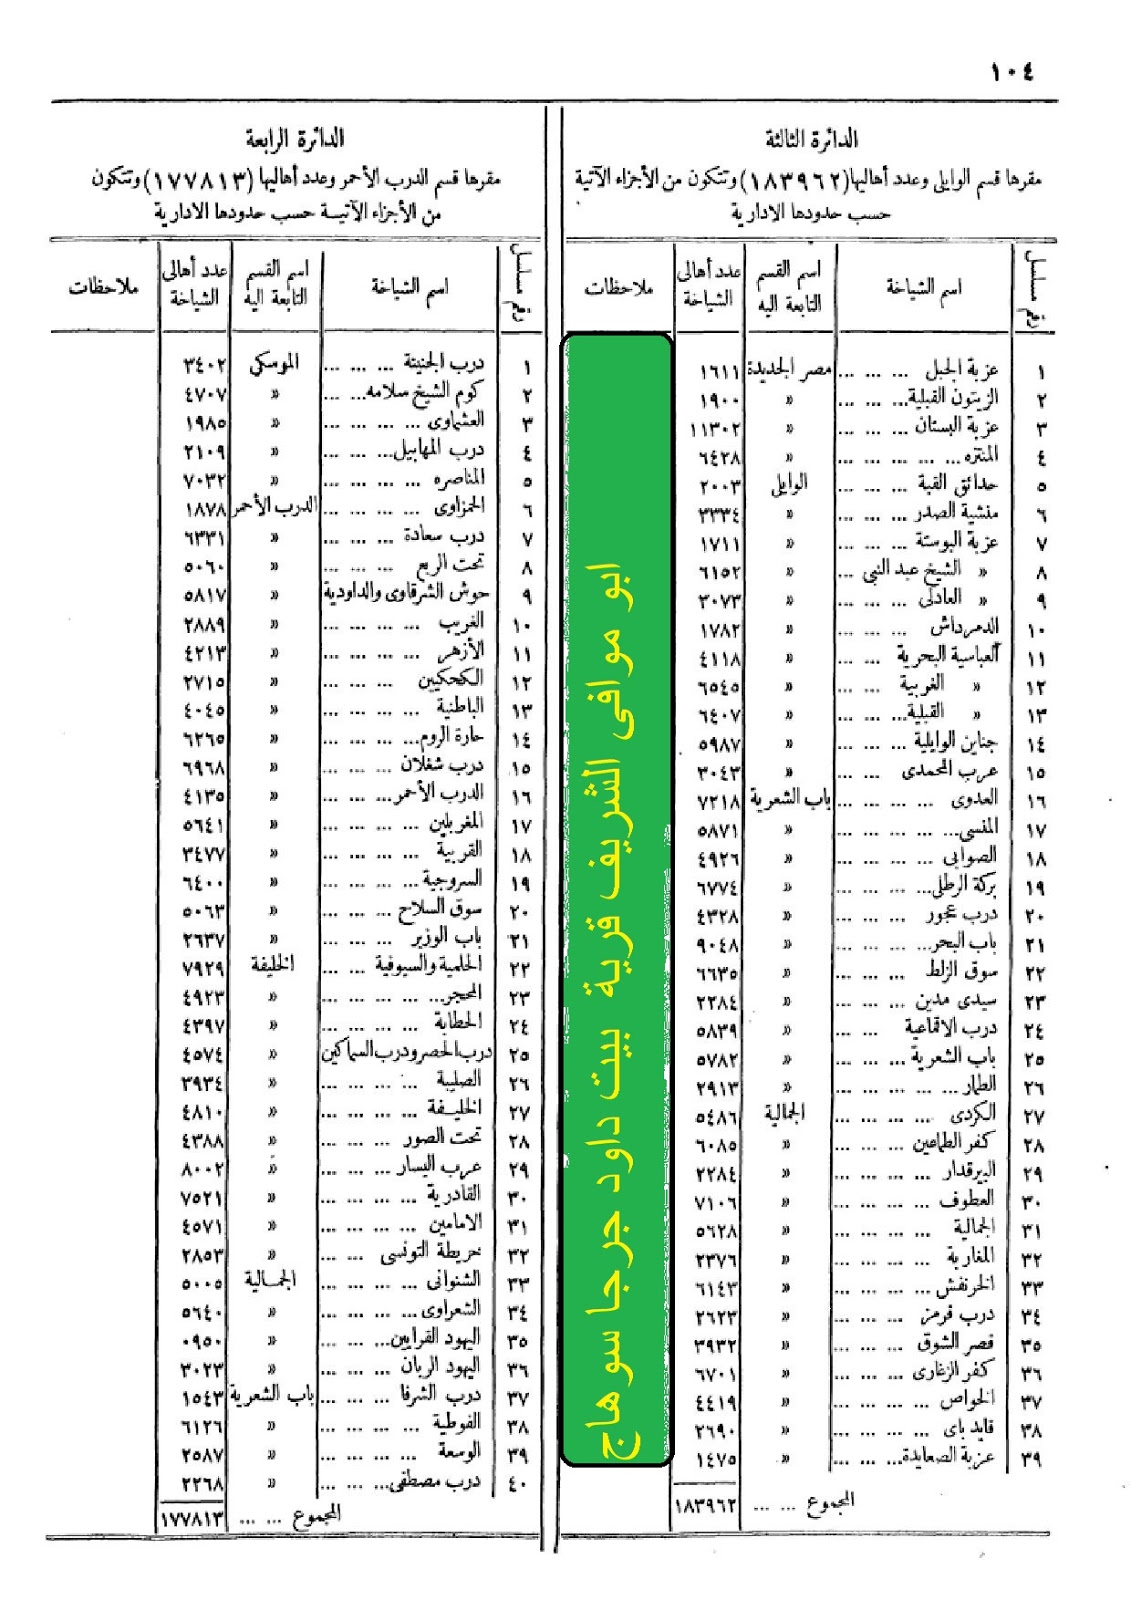 ١٠٤
الدائرة الثالثة
مقرها قسم الوايلى وعدد أهاليها (١٨٣٩٦٢) وتتكون من الأجزاء الآتية
حسب حدودها الادارية
رقم مسلسل | اسم الشياخة | اسم القسم التابعة اليه | عدد أهالى الشياخة | ملاحظات
١ عزبة الجبل ... ... ... مصر الجديدة ١٦١١
٢ الزيتون القبلية... ... ... » ١٩٠٠
٣ عزبة البستان ... ... ... » ١١٣٠٢
٤ المنتزه... ... ... ... ... » ٦٤٢٨
٥ حدائق القبة ... ... ... الوايلى ٢٠٠٣
٦ منشية الصدر ... ... ... » ٣٣٣٤
٧ عزبة البوستة ... ... ... » ١٧١١
٨ » الشيخ عبد النبى ... » ٦١٥٢
٩ » العادلى ... ... ... » ٣٠٧٣
١٠ الدمرداش ... ... ... » ١٧٨٢
١١ العباسية البحرية ... ... » ٤١١٨
١٢ » الغربية ... ... » ٦٥٤٥
١٣ » القبلية... ... ... » ٦٤٠٧
١٤ جناين الوايلية ... ... ... » ٥٩٨٧
١٥ عرب المحمدى ... ... ... » ٣٠٤٣
١٦ العدوى ... ... ... ... باب الشعرية ٧٢١٨
١٧ المقسى... ... ... ... ... » ٥٨٧١
١٨ الصوابى ... ... ... ... » ٤٩٢٦
١٩ بركة الرطلى... ... ... ... » ٦٧٧٤
٢٠ درب عجور ... ... ... » ٤٣٢٨
٢١ باب البحر... ... ... ... » ٩٠٤٨
٢٢ سوق الزلط ... ... ... » ٦٦٣٥
٢٣ سيدى مدين ... ... ... » ٢٢٨٤
٢٤ درب الاقماعية ... ... » ٥٨٣٩
٢٥ باب الشعرية ... ... ... » ٥٧٨٢
٢٦ الطمار... ... ... ... ... » ٢٩١٣
٢٧ الكردى ... ... ... ... الجمالية ٥٤٨٦
٢٨ كفر الطماعين ... ... ... » ٦٠٨٥
٢٩ البيرقدار ... ... ... ... » ٢٢٨٤
٣٠ العطوف ... ... ... ... » ٧١٠٦
٣١ الجمالية ... ... ... ... » ٥٦٢٨
٣٢ المغاربة ... ... ... ... » ٢٣٧٦
٣٣ الخرنفش ... ... ... ... » ٦١٤٣
٣٤ درب قرمز ... ... ... ... » ٢٦٢٣
٣٥ قصر الشوق ... ... ... » ٣٩٣٢
٣٦ كفر الزغارى ... ... ... » ٦٧٠١
٣٧ الخواص ... ... ... ... » ٤٤١٩
٣٨ قايد باى ... ... ... ... » ٢٦٩٠
٣٩ عزبة الصعايدة... ... ... » ١٤٧٥
المجموع ... ... ١٨٣٩٦٢
ابو موافى الشريف قرية بيت داود جرجا سوهاج
الدائرة الرابعة
مقرها قسم الدرب الأحمر وعدد أهاليها (١٧٧٨١٣) وتتكون
من الأجزاء الآتيـة حسب حدودها الادارية
رقم مسلسل | اسم الشياخة | اسم القسم التابعة اليه | عدد أهالى الشياخة | ملاحظات
١ درب الجنينة ... ... ... الموسكى ٣٤٠٢
٢ كوم الشيخ سلامه... ... » ٤٧٠٧
٣ العشماوى ... ... ... ... » ١٩٨٥
٤ درب المهابيل... ... ... » ٢١٠٩
٥ المناصره ... ... ... ... » ٧٠٣٢
٦ الحمزاوى ... ... ... ... الدرب الأحمر ١٨٧٨
٧ درب سعادة ... ... ... » ٦٣٣١
٨ تحت الربع ... ... ... » ٥٠٦٠
٩ حوش الشرقاوى والداودية » ٥٨١٧
١٠ الغريب ... ... ... ... » ٢٨٨٩
١١ الأزهر ... ... ... ... » ٤٢١٣
١٢ الكحكيين ... ... ... » ٢٧١٥
١٣ الباطنية ... ... ... ... » ٤٠٤٥
١٤ حارة الروم... ... ... ... » ٦٢٦٥
١٥ درب شغلان ... ... ... » ٦٩٦٨
١٦ الدرب الأحمر... ... ... » ٤١٣٥
١٧ المغربلين ... ... ... ... » ٥٦٤١
١٨ القربية ... ... ... ... » ٣٤٧٧
١٩ السروجية... ... ... ... » ٦٤٠٠
٢٠ سوق السلاح ... ... ... » ٥٠٦٣
٢١ باب الوزير ... ... ... » ٢٦٣٧
٢٢ الحلمية والسيوفية ... ... الخليفة ٧٩٢٩
٢٣ المحجر... ... ... ... ... » ٤٩٢٣
٢٤ الحطابة ... ... ... ... » ٤٣٩٧
٢٥ درب الحصر ودرب السماكين » ٤٥٧٤
٢٦ الصليبة ... ... ... ... » ٣٩٣٤
٢٧ الخليـفة ... ... ... ... » ٤٨١٠
٢٨ تحت الصور ... ... ... » ٤٣٨٨
٢٩ عرب اليسار ... ... ... » ٨٠٠٢
٣٠ القادرية ... ... ... ... » ٧٥٢١
٣١ الامامين ... ... ... ... » ٤٥٧١
٣٢ خريطة التونسى ... ... » ٢٨٥٣
٣٣ الشنوانى ... ... ... ... الجمـالية ٥٠٠٥
٣٤ الشعراوى... ... ... ... » ٥٦٤٠
٣٥ اليهود القرايين... ... ... » ٠٩٥٠
٣٦ اليهود الربان ... ... ... » ٣٠٢٣
٣٧ درب الشرفا ... ... ... باب الشعرية ١٥٤٣
٣٨ الفوطية ... ... ... ... » ٦١٢٦
٣٩ الوسعة ... ... ... ... » ٢٥٨٧
٤٠ درب مصطفى... ... ... » ٢٢٦٨
المجموع ... ... ١٧٧٨١٣